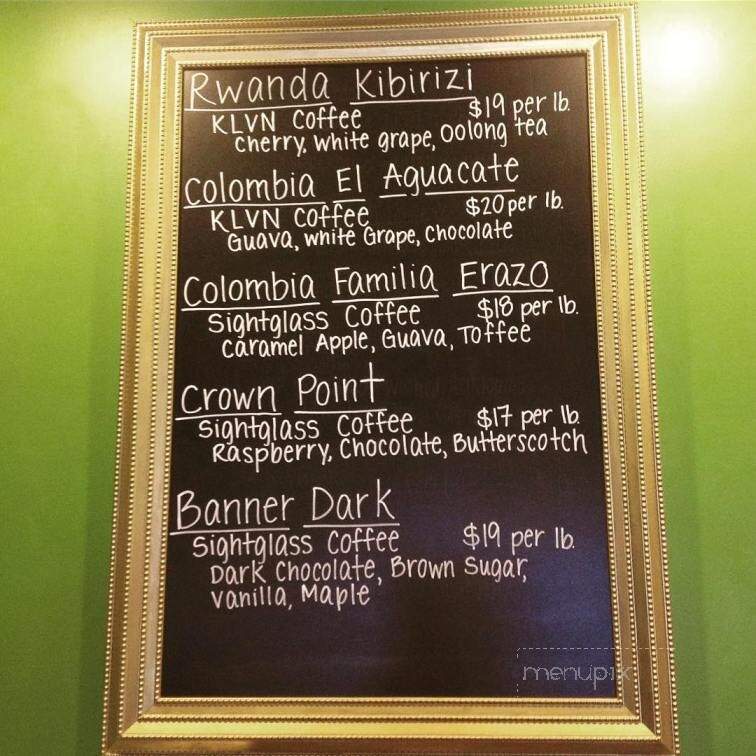 Rwanda Kibirizi
KLVN Coffee $19 per lb.
Cherry, white grape, Oolong tea
Colombia El Aguacate
KLVN Coffee $20 per lb.
Guava, white Grape, Chocolate
Colombia Familia Erazo
Sightglass Coffee $18 per lb.
Caramel Apple, Guava, Toffee
Crown Point
Sightglass Coffee $17 per lb.
Raspberry, Chocolate, Butterscotch
Banner Dark
Sightglass Coffee $19 per lb.
Dark Chocolate, Brown Sugar,
Vanilla, Maple
menupix